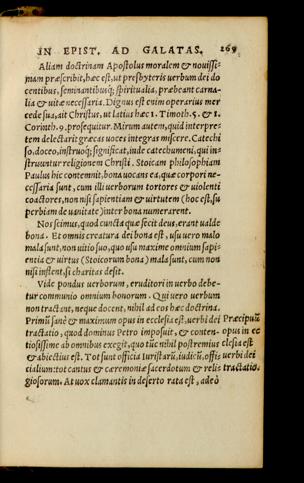 IN EPIST. AD GALATAS. 269
Aliam doctrinam Apostolus moralem & nouissi-
mam præscribit, hæc est, ut presbyteris uerbum dei do
centibus, seminantibusq; spiritualia, præbeant carna-
lia & uitæ necessaria. Dignus est enim operarius mer
cede sua, ait Christus, ut latius hæc 1. Timoth. 5. & 1.
Corinth. 9. prosequitur. Mirum autem, quid interpre-
tem delectarit græcas uoces integras miscere. Catechi
so, doceo, instruoq; significat, inde catechumeni, qui in-
struuntur religionem Christi. Stoicam philosophiam
Paulus hic contemnit, bona uocans ea, quæ corpori ne-
cessaria sunt, cum illi uerborum tortores & uiolenti
coactores, non nisi sapientiam & uirtutem (hoc est, su
perbiam de uanitate) inter bona numerarent.
Nos scimus, quod cuncta quæ fecit deus, erant ualde
bona. Et omnis creatura dei bona est, usu uero malo
mala sunt, non uitio suo, quo usu maxime omnium sapi-
entia & uirtus (Stoicorum bona) mala sunt, cum non
nisi inflent, si charitas desit.
Vide pondus uerborum, eruditori in uerbo debe-
tur communio omnium bonorum. Qui uero uerbum
non tractant, neque docent, nihil ad eos hæc doctrina.
Primū sanè & maximum opus in ecclesia est, uerbi dei
tractatio, quod dominus Petro imposuit, & conten-
tiosissime ab omnibus exegit, quo tūc nihil postremius
& abiectius est. Tot sunt officia Iuristarū, iudicū, offi
cialium: tot cantus & cæremoniæ sacerdotum & reli
giosorum. At uox clamantis in deserto rata est, adeò
Præcipuū
opus in ec
clesia est
uerbi dei
tractatio.